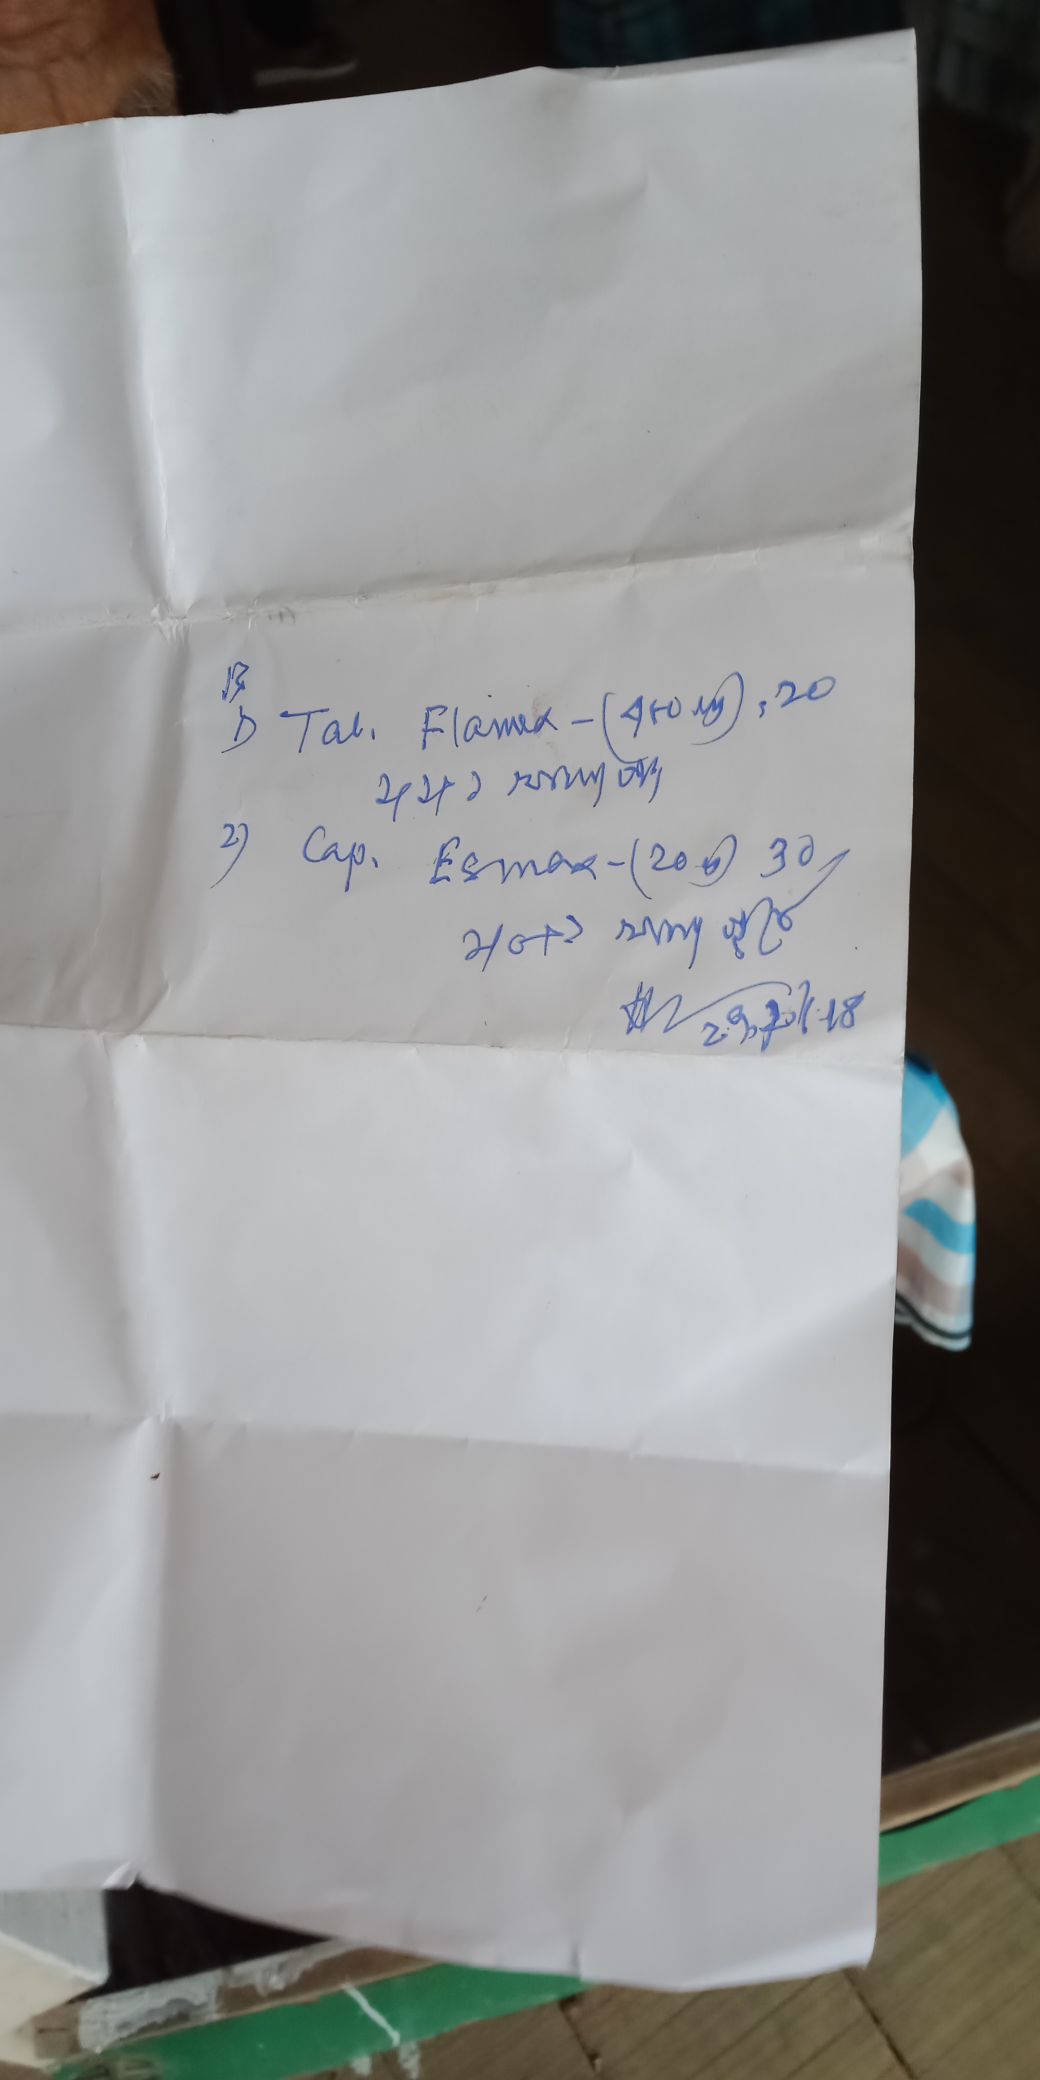 Rx
1) Tab. Flamex-(400 mg) . 20
১+১+১ খাবার পর
2) Cap. Esmox-(20 mg) 30
১+০+১ খাবার পূর্বে
18